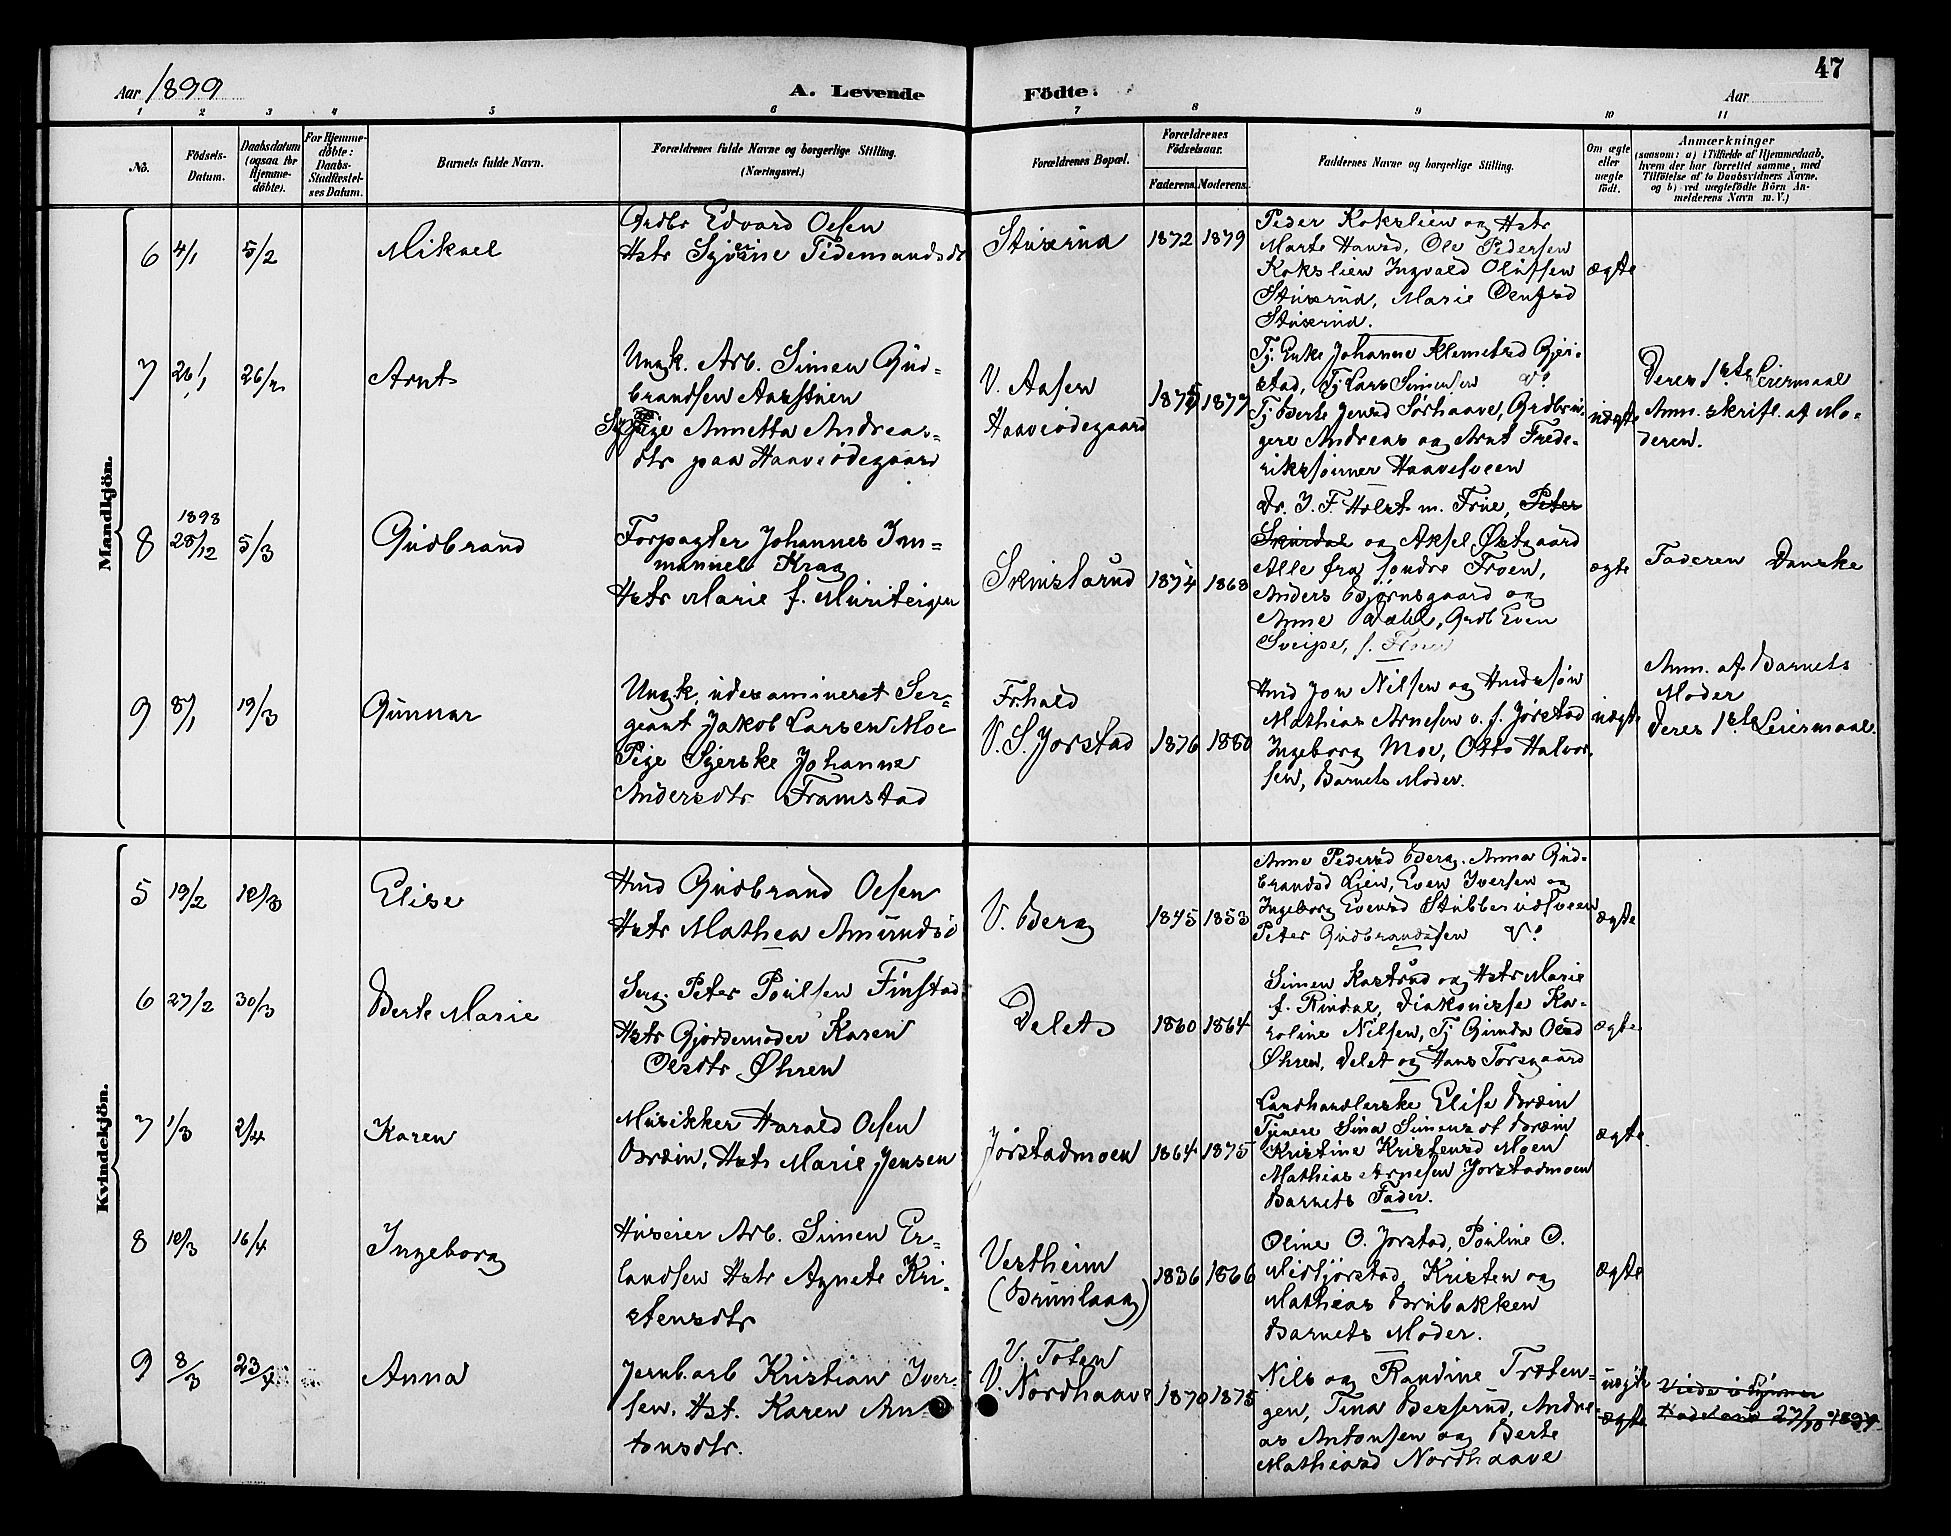 47
Aar 1899
A. Levende Födte.
Aar
1 2 3 4 5 6 7 8 9 10 11
No.
Födsels-
Datum.
Daabsdatum
(ogsaa for
Hjemme-
döbte).
For Hjemme-
döbte:
Daabs-
Stadfæstel-
ses Datum.
Barnets fulde Navn.
Forældrenes fulde Navne og borgerlige Stilling.
(Næringsvei.)
Forældrenes Bopæl.
Forældrenes
Födselsaar.
Faderens. Moderens.
Faddernes Navne og borgerlige Stilling.
Om ægte
eller
uægte
født.
Anmærkninger
(saasom: a) i Tilfælde af Hjemmedaab,
hvem der har forrettet samme, med
Tilföielse af to Daabsvidners Navne.
og b) ved uægtefödte Börn An-
melderens Navn m. V.)
Mandkjön.
6 4/1 5/2 Mikael
Grdbr Edvard Olsen
Hstr Tidemandsdtr
Stuserud 1872 1879
Peder Kokslien og Hstr
Marte Hansd, Ole Pedersen
Kokslien Ingvald Olufsen
Stuserud, Marie
Stuserud.
ægte
7 26/1 26/2 Arnt
Ungk. Arb. Simen Gud-
brandsen Aasstuen
Pige Annetta Andreas-
dtr paa Haaveødegaard
V. Aasen
Haaveødegaard
1875 1877
Tj. Enke Johanne Klemetsd Gjei-
stad, Tj Lars Simensen V.
Tj Berte Jensd Sørhaave, Grdbru-
gere Andreas og Arnt Frede-
rikssønner Haavesveen
uægte
Deres 1ste Leiermaal
Anm. skriftl. af Mo-
deren.
8 1898 28/12 5/3 Gudbrand
Forpagter Johannes Im-
manuel Krag
Hstr Marie f.
Skuistarud 1874 1868
Dr. J. F. Holst m. Frue, Peter
og Aksel Østgaard
Alle fra søndre Froen,
Anders Bjørnsgaard og
Anne Dahl, Grdb Even
Sveipe, s. Froen
ægte
Faderen Danske
9 8/1 19/3 Gunnar
Ungk. udexamineret Ser-
geant Jakob Larsen Moe
Pige Syerske Johanne
Andersdtr Framstad
Fr.hald
V. S. Jorstad
1876 1880
Hmd Jon Nilsen og Husmdsøn
Mathias Arnesen v. f. Jørstad
Ingeborg Moe, Otto Halvor-
sen, Barnets Moder.
uægte
Anm. af Barnets
Moder
Deres 1ste Leiermaal.
Kvindekjön.
5 19/2 12/3 Elise
Hmd Gudbrand Olsen
Hstr Mathea Amundsd
V. Berg 1845 1853
Anne Pedersd Berg. Anna Gud-
brandsd Lien, Even Iversen og
Ingeborg Evensd Stubberudsveen
Peter Gudbrandsen V.
ægte
6 27/2 30/3 Berte Marie
Serg. Peter Poulsen Finstad
Hstr Gjordemoder Karen
Olsdtr Øhren
Delets 1860 1864
Simen Kastrud og Hstr Marie
f. Rindal, Diakonisse Ka-
roline Nilsen, Tj Gunda Olsd
Øhren, Delet og Hans Torsgaard
ægte
7 1/3 2/4 Karen
Musikker Harald Olsen
Bræin, Hstr Marie Jensen
Jørstadmoen 1864 1875
Landhandlerske Elise Bræin
Tjenere Sina Simensdt Bræin
Kristine Kristensd Moen
Mathias Arnesen Jorstadmoen
Barnets Fader.
ægte
8 12/3 16/4 Ingeborg
Huseier Arb. Simen Er-
landsen Hstr Agnete Kri-
stensdtr
Vestheim
(Brunlaug)
1836 1866
Oline O. Jorstad, Pouline O.
Midtjørstad, Kristen og
Mathias Brubakken
Barnets Moder.
ægte
9 8/3 23/4 Anna
Jernb.arb Kristian Iver-
sen. Hst. Karen An-
tonsdtr.
V. Toten
V. Nordhaave
1870 1875
Nils og Randine Træten-
gen, Tina Besserud, Andre-
as Antonsen og Berte
Mathiasd Nordhaave
uægte
ægte
Viede i
Hadeland 27/10 1899